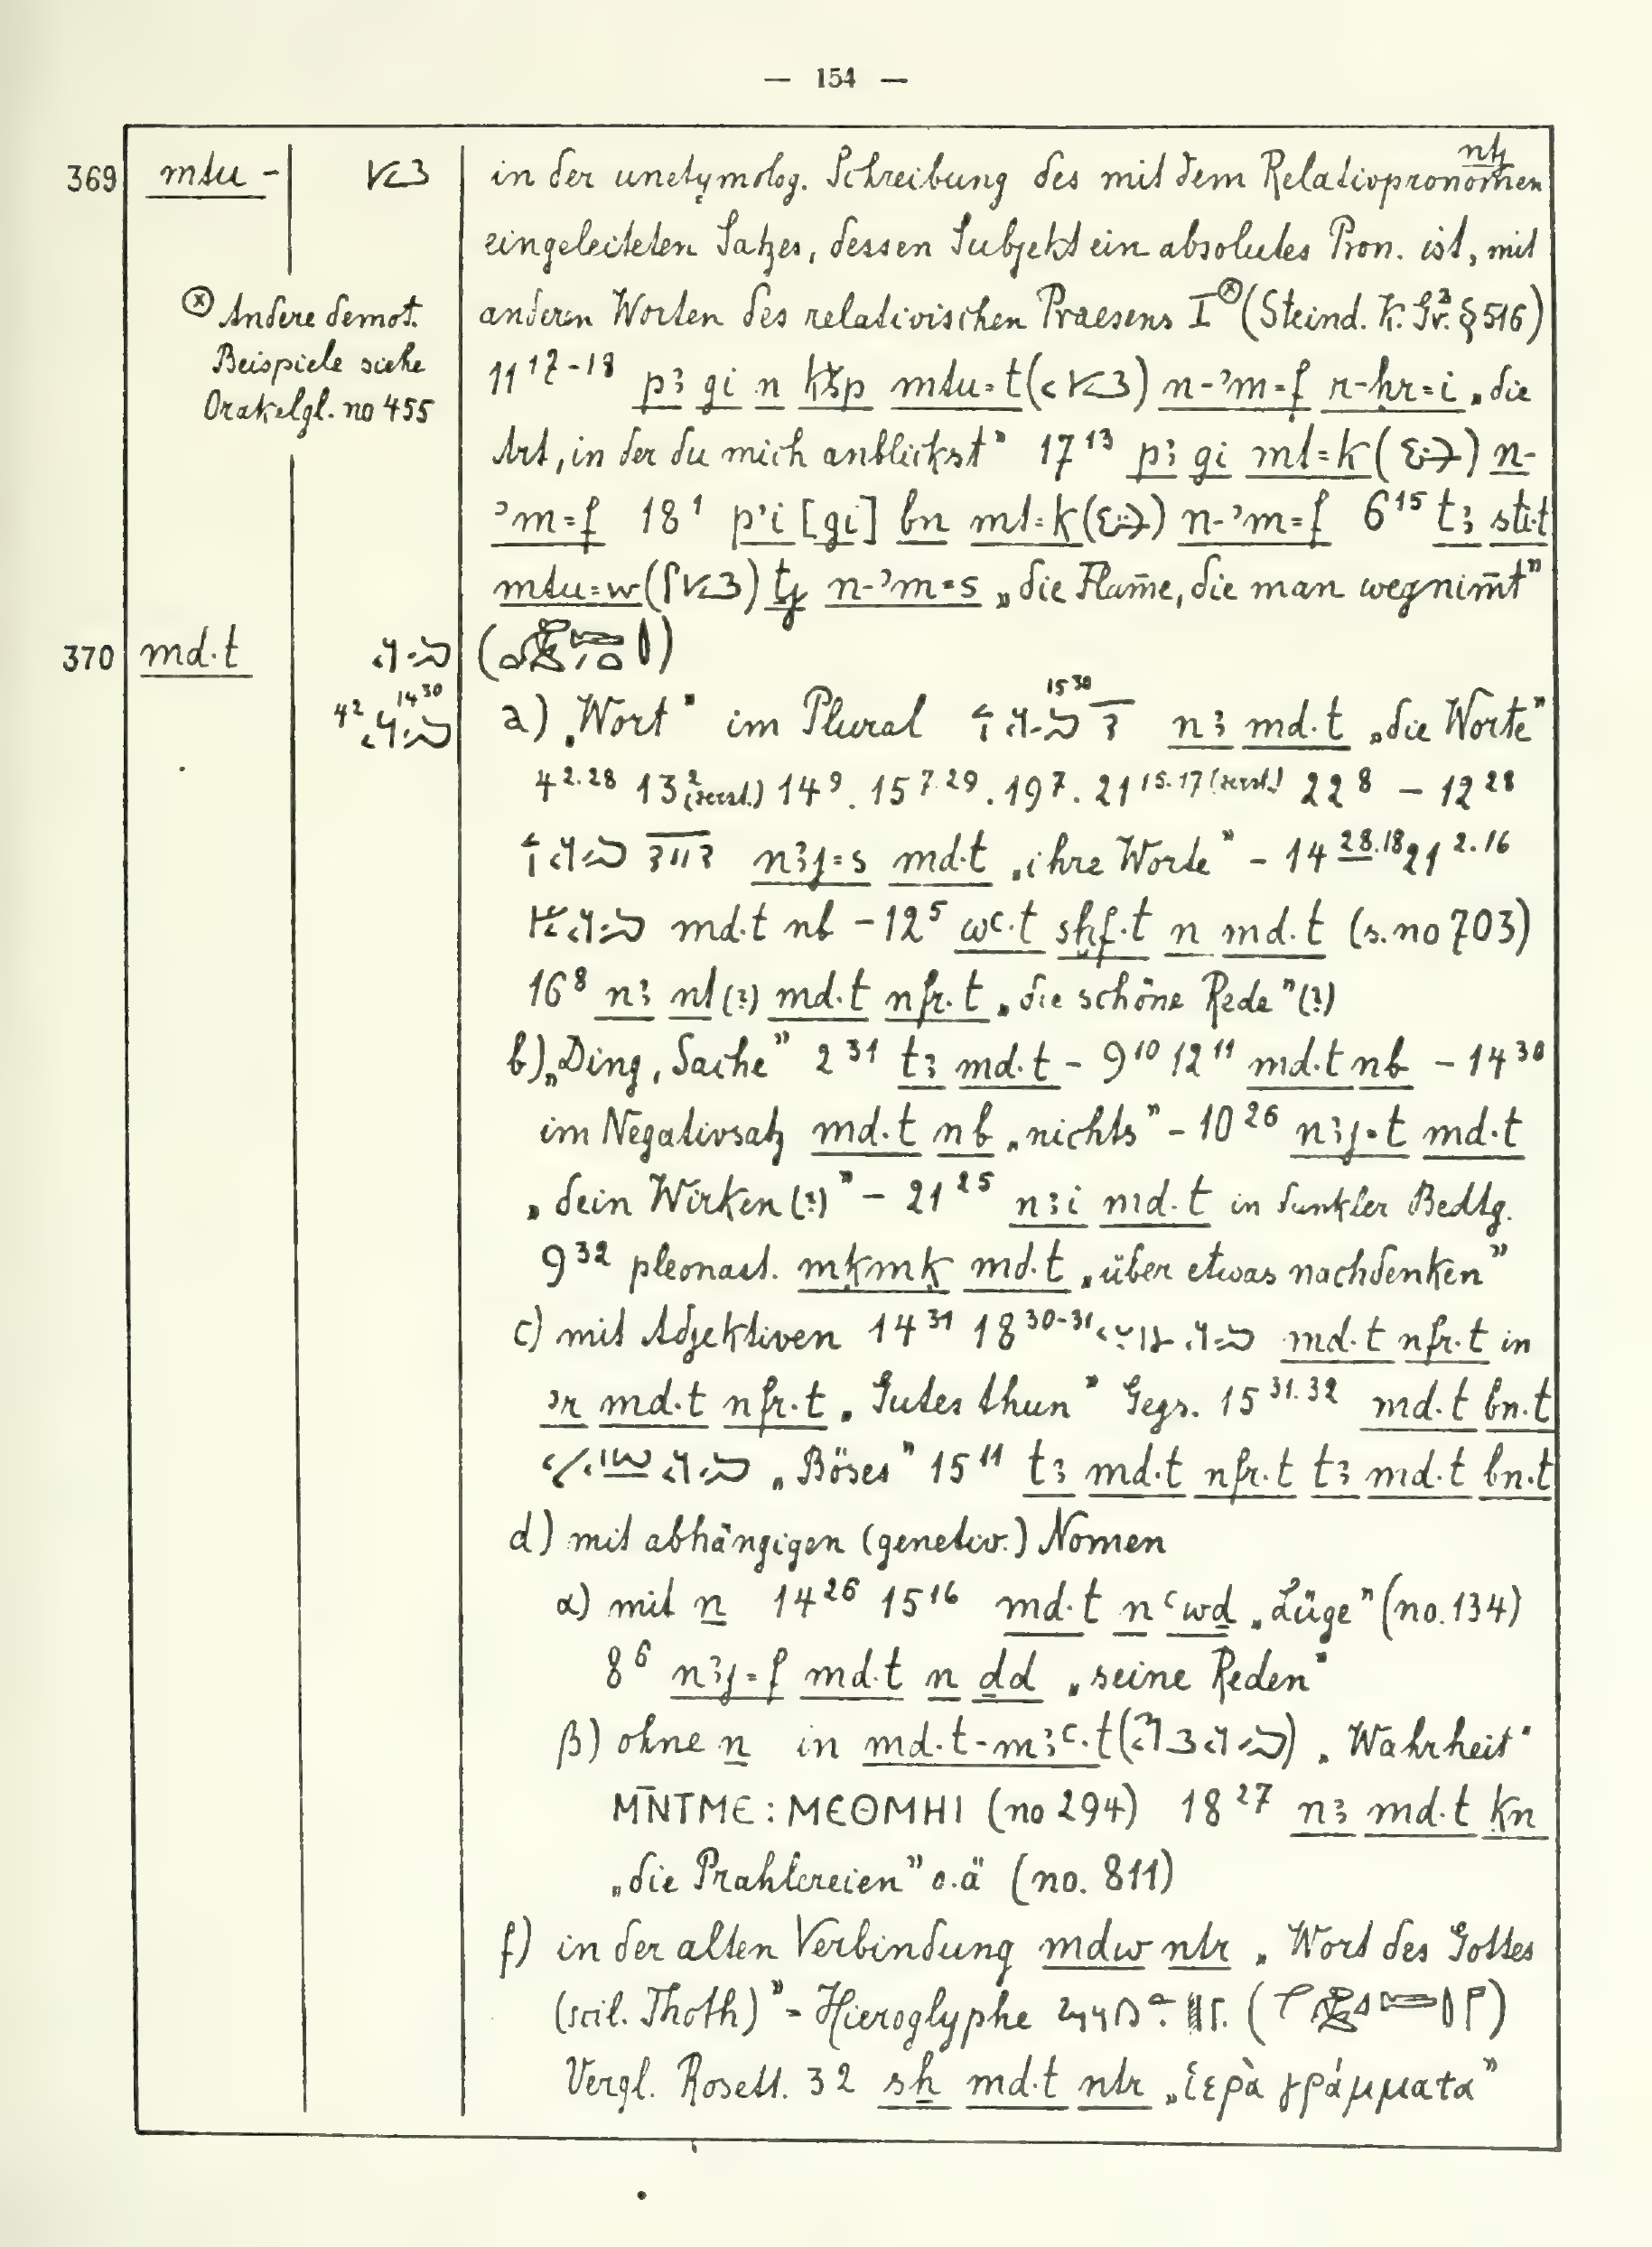 — 154 —
369 mtu - in der unetymolog. Schreibung des mit dem Relativpronomen ntj
eingeleiteten Satzes, dessen Subjekt ein absolutes Pron. ist, mit
anderen Worten des relativischen Praesens I ⓧ (Steind. K. Gr.² § 516)
ⓧ Andere demot.
Beispiele siehe
Orakelgl. no 455
11 17-18 pꜣ gi n kšp mtu=t ( ) n-ʾm=f r-ḥr=i „die
Art, in der du mich anblickst” 17 13 pꜣ gi mt=k ( ) n-
ʾm=f 18 1 pʾi [gi] bn mt=k ( ) n-ʾm=f 6 15 tꜣ sti·t
mtu=w ( ) ṯj n-ʾm=s „die Flam̄e, die man wegnim̄t”
370 md·t ( )
4 2 14 30
a) „Wort” im Plural 15 30 nꜣ md·t „die Worte”
4 2.28 13 2 (zerst.) 14 9. 15 7.29. 19 7. 21 15.17 (zerst.) 22 8 – 12 28
nꜣj=s md·t „ihre Worte” – 14 28.18 21 2.16
md·t nb – 12 5 wꜥ·t sḫf·t n md·t (s. no 703)
16 8 nꜣ nt (?) md·t nfr·t „die schöne Rede” (?)
b) „Ding, Sache” 2 31 tꜣ md·t – 9 10 12 11 md·t nb – 14 30
im Negativsatz md·t nb „nichts” – 10 26 nꜣj·t md·t
„dein Wirken (?)” – 21 25 nꜣi md·t in dunkler Bedtg.
9 32 pleonast. mḳmḳ md·t „über etwas nachdenken”
c) mit Adjektiven 14 31 18 30-31 md·t nfr·t in
ʾr md·t nfr·t „Gutes thun” Gegs. 15 31.32 md·t bn·t
„Böses” 15 11 tꜣ md·t nfr·t tꜣ md·t bn·t
d) mit abhängigen (genetiv.) Nomen
α) mit n 14 26 15 16 md·t n ꜥwḏ „Lüge” (no. 134)
8 6 nꜣj=f md·t n ḏd „seine Reden”
β) ohne n in md·t-mꜣꜥ·t ( ) „Wahrheit”
ⲘN̄ⲦⲘⲈ : ⲘⲈⲐⲘⲎⲒ (no 294) 18 27 nꜣ md·t ḳn
„die Prahlereien” o.ä (no. 811)
f) in der alten Verbindung mdw ntr „Wort des Gottes
(scil. Thoth)” = Hieroglyphe ( )
Vergl. Rosett. 32 sẖ md·t ntr „ἱερὰ γράμματα”